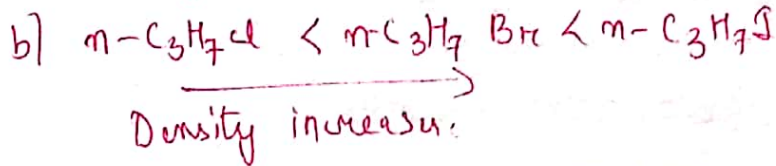 b] n-C₃H₇Cl < n-C₃H₇ Br < n-C₃H₇I
Density increases.